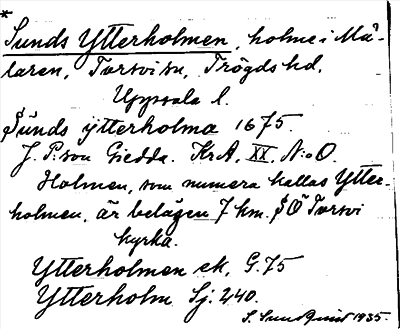 *
Sunds Ytterholmen, holme i Mä-
laren, Torsvi sn, Trögds hd,
Uppsala l.
Sunds ytterholma 1675.
J. P:son Giedda. KrA, XX. N:o O.
Holmen, som numera kallas Ytter-
holmen, är belägen 7 km. SÖ Torsvi
kyrka.
Ytterholmen ek. G. 75
Ytterholm Sj. 240.
S. Sundquist 1935.